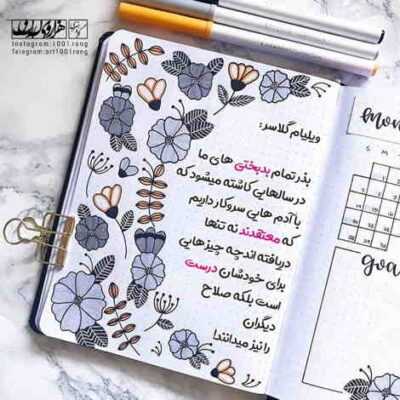 هزار و یک رنگ
instagram:1001.rang
Telegram:art1001rang
ویلیام گلاسر:
بذر تمام بدبختی های ما
در سالهایی کاشته میشود که
با آدم هایی سروکار داریم
که معتقدند نه تنها
دریافته اند چه چیزهایی
برای خودشان درست
است بلکه صلاح
دیگران
را نیز میدانند!
mon
S M
goa